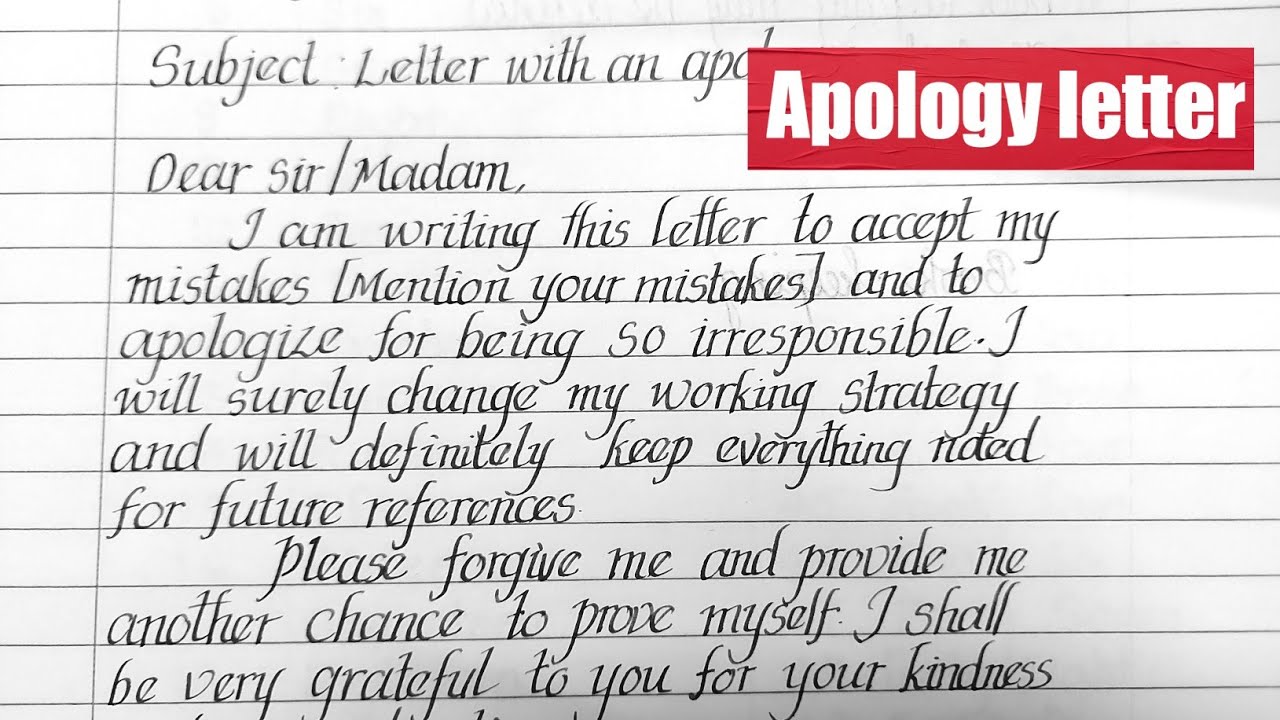 Subject : Letter with an apo
Apology letter
Dear Sir/Madam,
I am writing this letter to accept my
mistakes [Mention your mistakes] and to
apologize for being so irresponsible. I
will surely change my working strategy
and will definitely keep everything noted
for future references.
Please forgive me and provide me
another chance to prove myself. I shall
be very grateful to you for your kindness